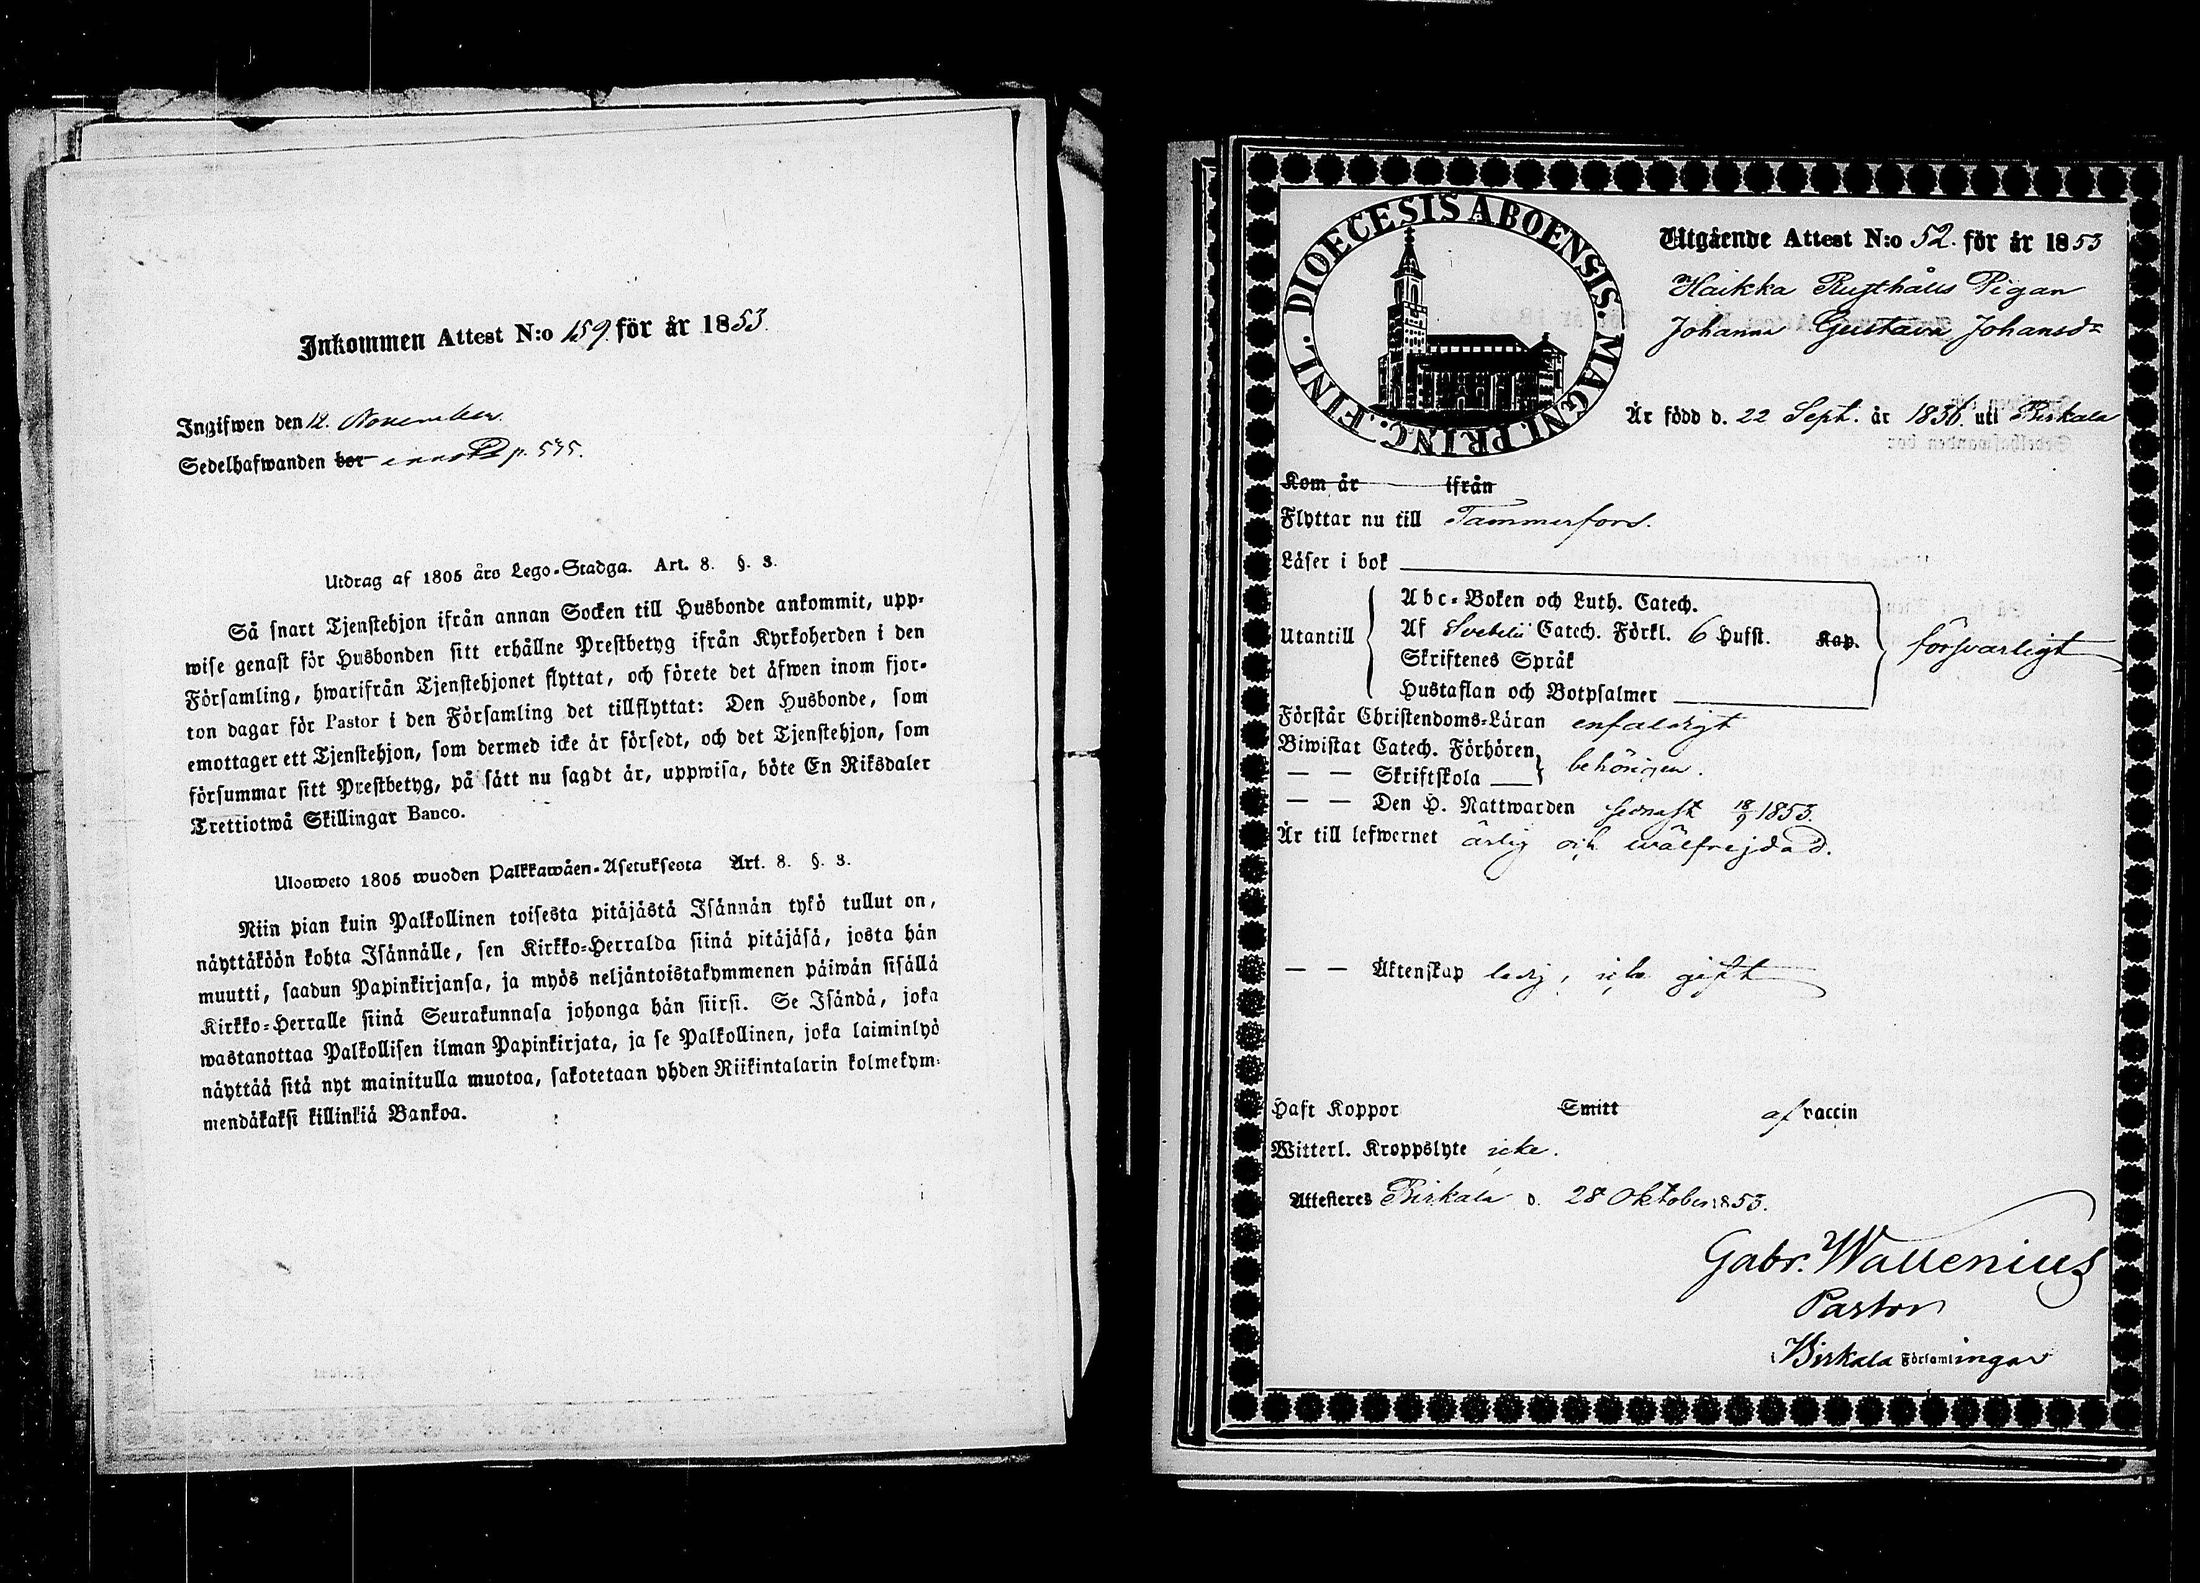 Inkommen Attest N:o 159. för år 1853.
Ingifwen den 12. November.
Sedelhafwanden bor p. 535.
Utdrag af 1805 års Lego-Stadga. Art. 8. §. 3.
Så snart Tjenstehjon ifrån annan Socken till Husbonde ankommit, upp-
wise genast för Husbonden sitt erhållne Prestbetyg ifrån Kyrkoherden i den
Församling, hwarifrån Tjenstehjonet flyttat, och förete det äfwen inom fjor-
ton dagar för Pastor i den Församling det tillflyttat: Den Husbonde, som
emottager ett Tjenstehjon, som dermed icke är försedt, och det Tjenstehjon, som
försummar sitt Prestbetyg, på sätt nu sagdt är, uppwisa, böte En Riksdaler
Trettiotwå Skillingar Banco.
Ulosweto 1805 wuoden Palkkawäen-Asetuksesta Art. 8. §. 3.
Niin pian kuin Palkollinen toisesta pitäjästä Isännän tykö tullut on,
näyttäköön kohta Isännälle, sen Kirkko-Herralda siinä pitäjäsä, josta hän
muutti, saadun Papinkirjansa, ja myös neljäntoistakymmenen päiwän sisällä
Kirkko-Herralle siinä Seurakunnasa johonga hän siirsi. Se Isändä, joka
wastanottaa Palkollisen ilman Papinkirjata, ja se Palkollinen, joka laiminlyö
näyttää sitä nyt mainitulla muotoa, sakotetaan yhden Riikintalarin kolmekym-
mendäkaksi killinkiä Bankoa.
DIOECESIS ABOENSIS. MAGNI PRINC. FINL.
Utgående Attest N:o 52. för år 1853
Haikka Rusthålls Pigan
Johanna Gustava Johansdr
Är född d. 22 Sept. år 1836. uti Birkala
Kom år ifrån
Flyttar nu till Tammerfors.
Läser i bok
Abc-Boken och Luth. Catech.
Utantill Af Svebelii Catech. Förkl. 6 Hufst. Kap. försvarligt
Skriftenes Språk
Hustaflan och Botpsalmer
Förstår Christendoms-Läran enfaldigt
Biwistat Catech. Förhören
— — Skriftskola behörigen.
— — Den H. Nattwarden senast 18/9 1853.
Är till lefwernet ärlig och wälfrejdad.
— — Äktenskap ledig, icke gift
Haft Koppor Smitt af vaccin
Witterl. Kroppslyte icke.
Attesteres Birkala d. 28 Oktober 1853.
Gabr. Wallenius
Pastor
i Birkala Församlingar